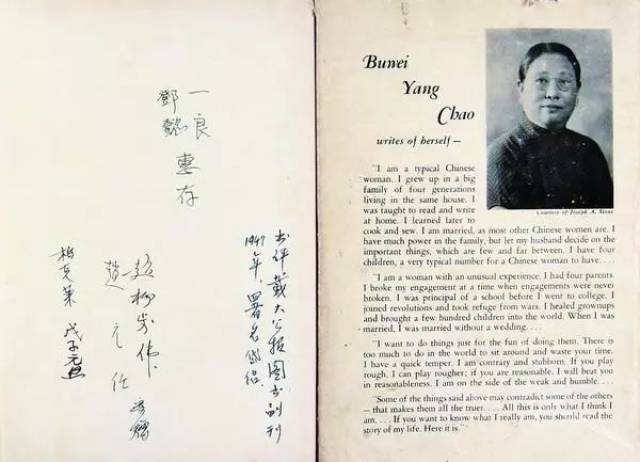 一良
鄧懿 惠存
趙楊步偉
趙元任 贈
柏克萊 戊子元旦
书评載大公报图书副刊
1947年，署名
Buwei
Yang
Chao
writes of herself—
Courtesy of Joseph A.
"I am a typical Chinese
woman. I grew up in a big
family of four generations
living in the same house. I
was taught to read and write
at home. I learned later to
cook and sew. I am married, as most other Chinese women are. I
have much power in the family, but let my husband decide on the
important things, which are few and far between. I have four
children, a very typical number for a Chinese woman to have....
"I am a woman with an unusual experience. I had four parents.
I broke my engagement at a time when engagements were never
broken. I was principal of a school before I went to college. I
joined revolutions and took refuge from wars. I healed grownups
and brought a few hundred children into the world. When I was
married, I was married without a wedding....
"I want to do things just for the fun of doing them. There is
too much to do in the world to sit around and waste your time.
I have a quick temper. I am contrary and stubborn. If you play
rough, I can play rougher; if you are reasonable, I will beat you
in reasonableness. I am on the side of the weak and humble....
"Some of the things said above may contradict some of the others
—that makes them all the truer.... All this is only what I think I
am.... If you want to know what I really am, you should read the
story of my life. Here it is."